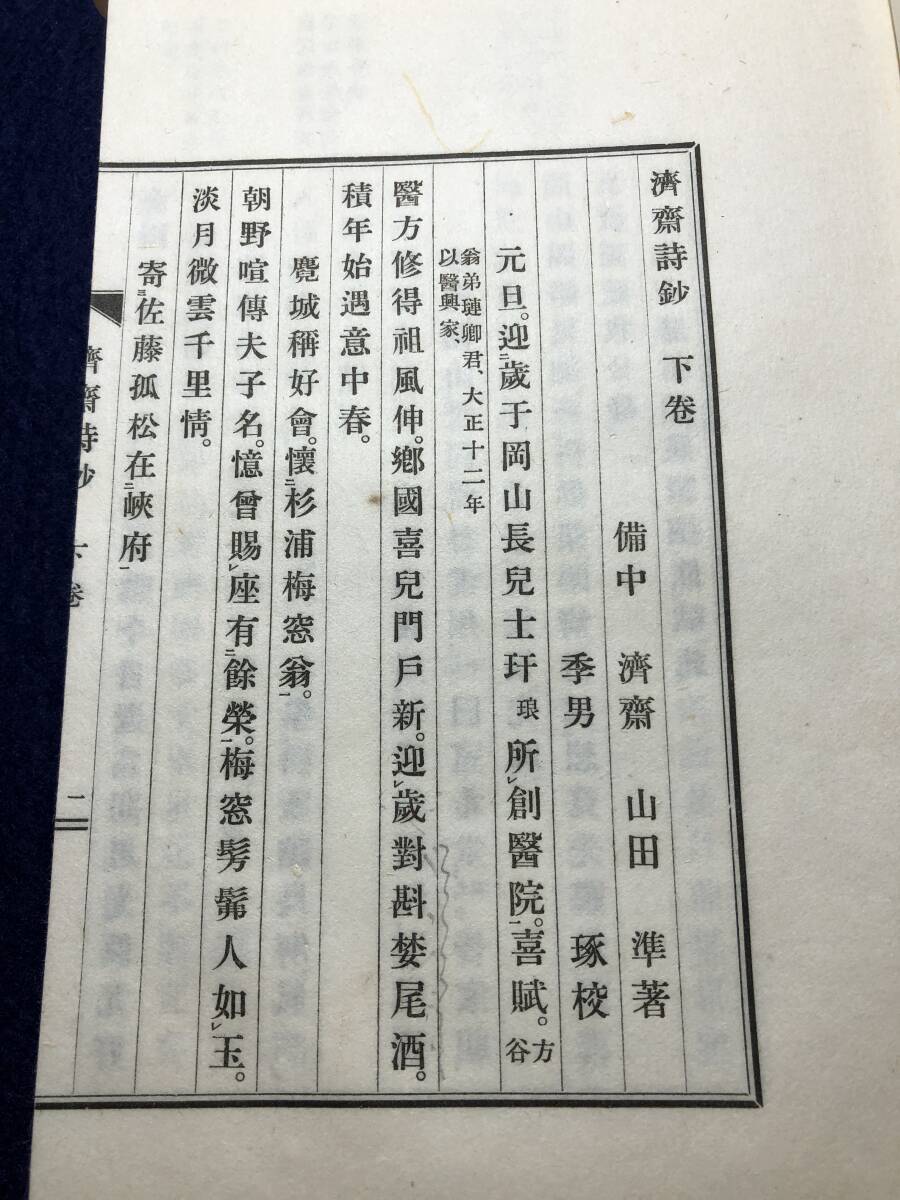 濟齋詩鈔　下卷
備中　濟齋　山田　準著
季男　琢校
元旦。迎ニ歲于岡山長兒士玕琅所レ創醫院一。喜賦。方谷
翁弟璉卿君、大正十二年
以醫興家、
醫方修得祖風伸。鄕國喜兒門戶新。迎レ歲對斟婪尾酒。
積年始遇意中春。
甍城稱好會。懷ニ杉浦梅窓翁一。
朝野喧傳夫子名。憶曾賜レ座有ニ餘榮一。梅窓髣髴人如レ玉。
淡月微雲千里情。
寄ニ佐藤孤松在ニ峽府一
濟齋詩鈔　下卷　二